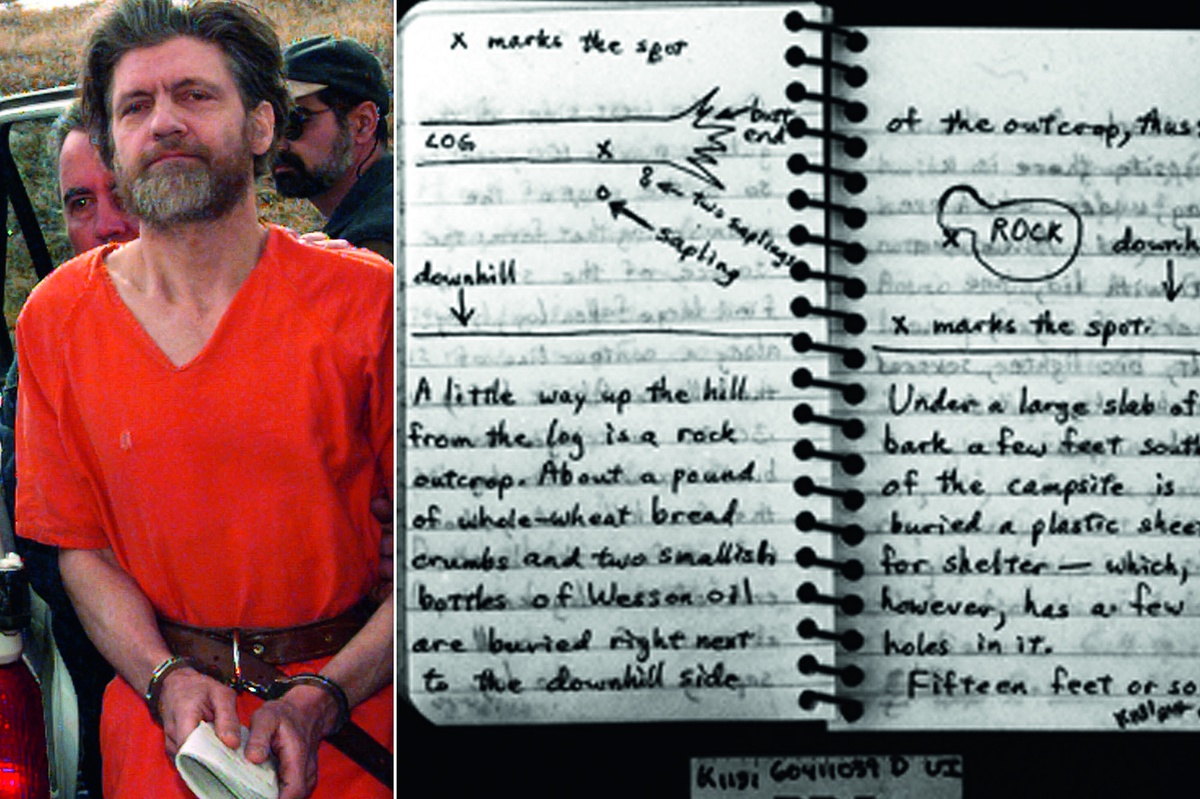 x marks the spot
butt
end
LOG
x
two saplings
sapling
downhill
A little way up the hill
from the log is a rock
outcrop. About a pound
of whole-wheat bread
crumbs and two smallish
bottles of Wesson oil
are buried right next
to the downhill side
of the outcrop, thus
x ROCK
downh
x marks the spot.
Under a large slab of
bark a few feet south
of the campsite is
buried a plastic shee
for shelter — which,
however, has a few
holes in it.
Fifteen feet or so